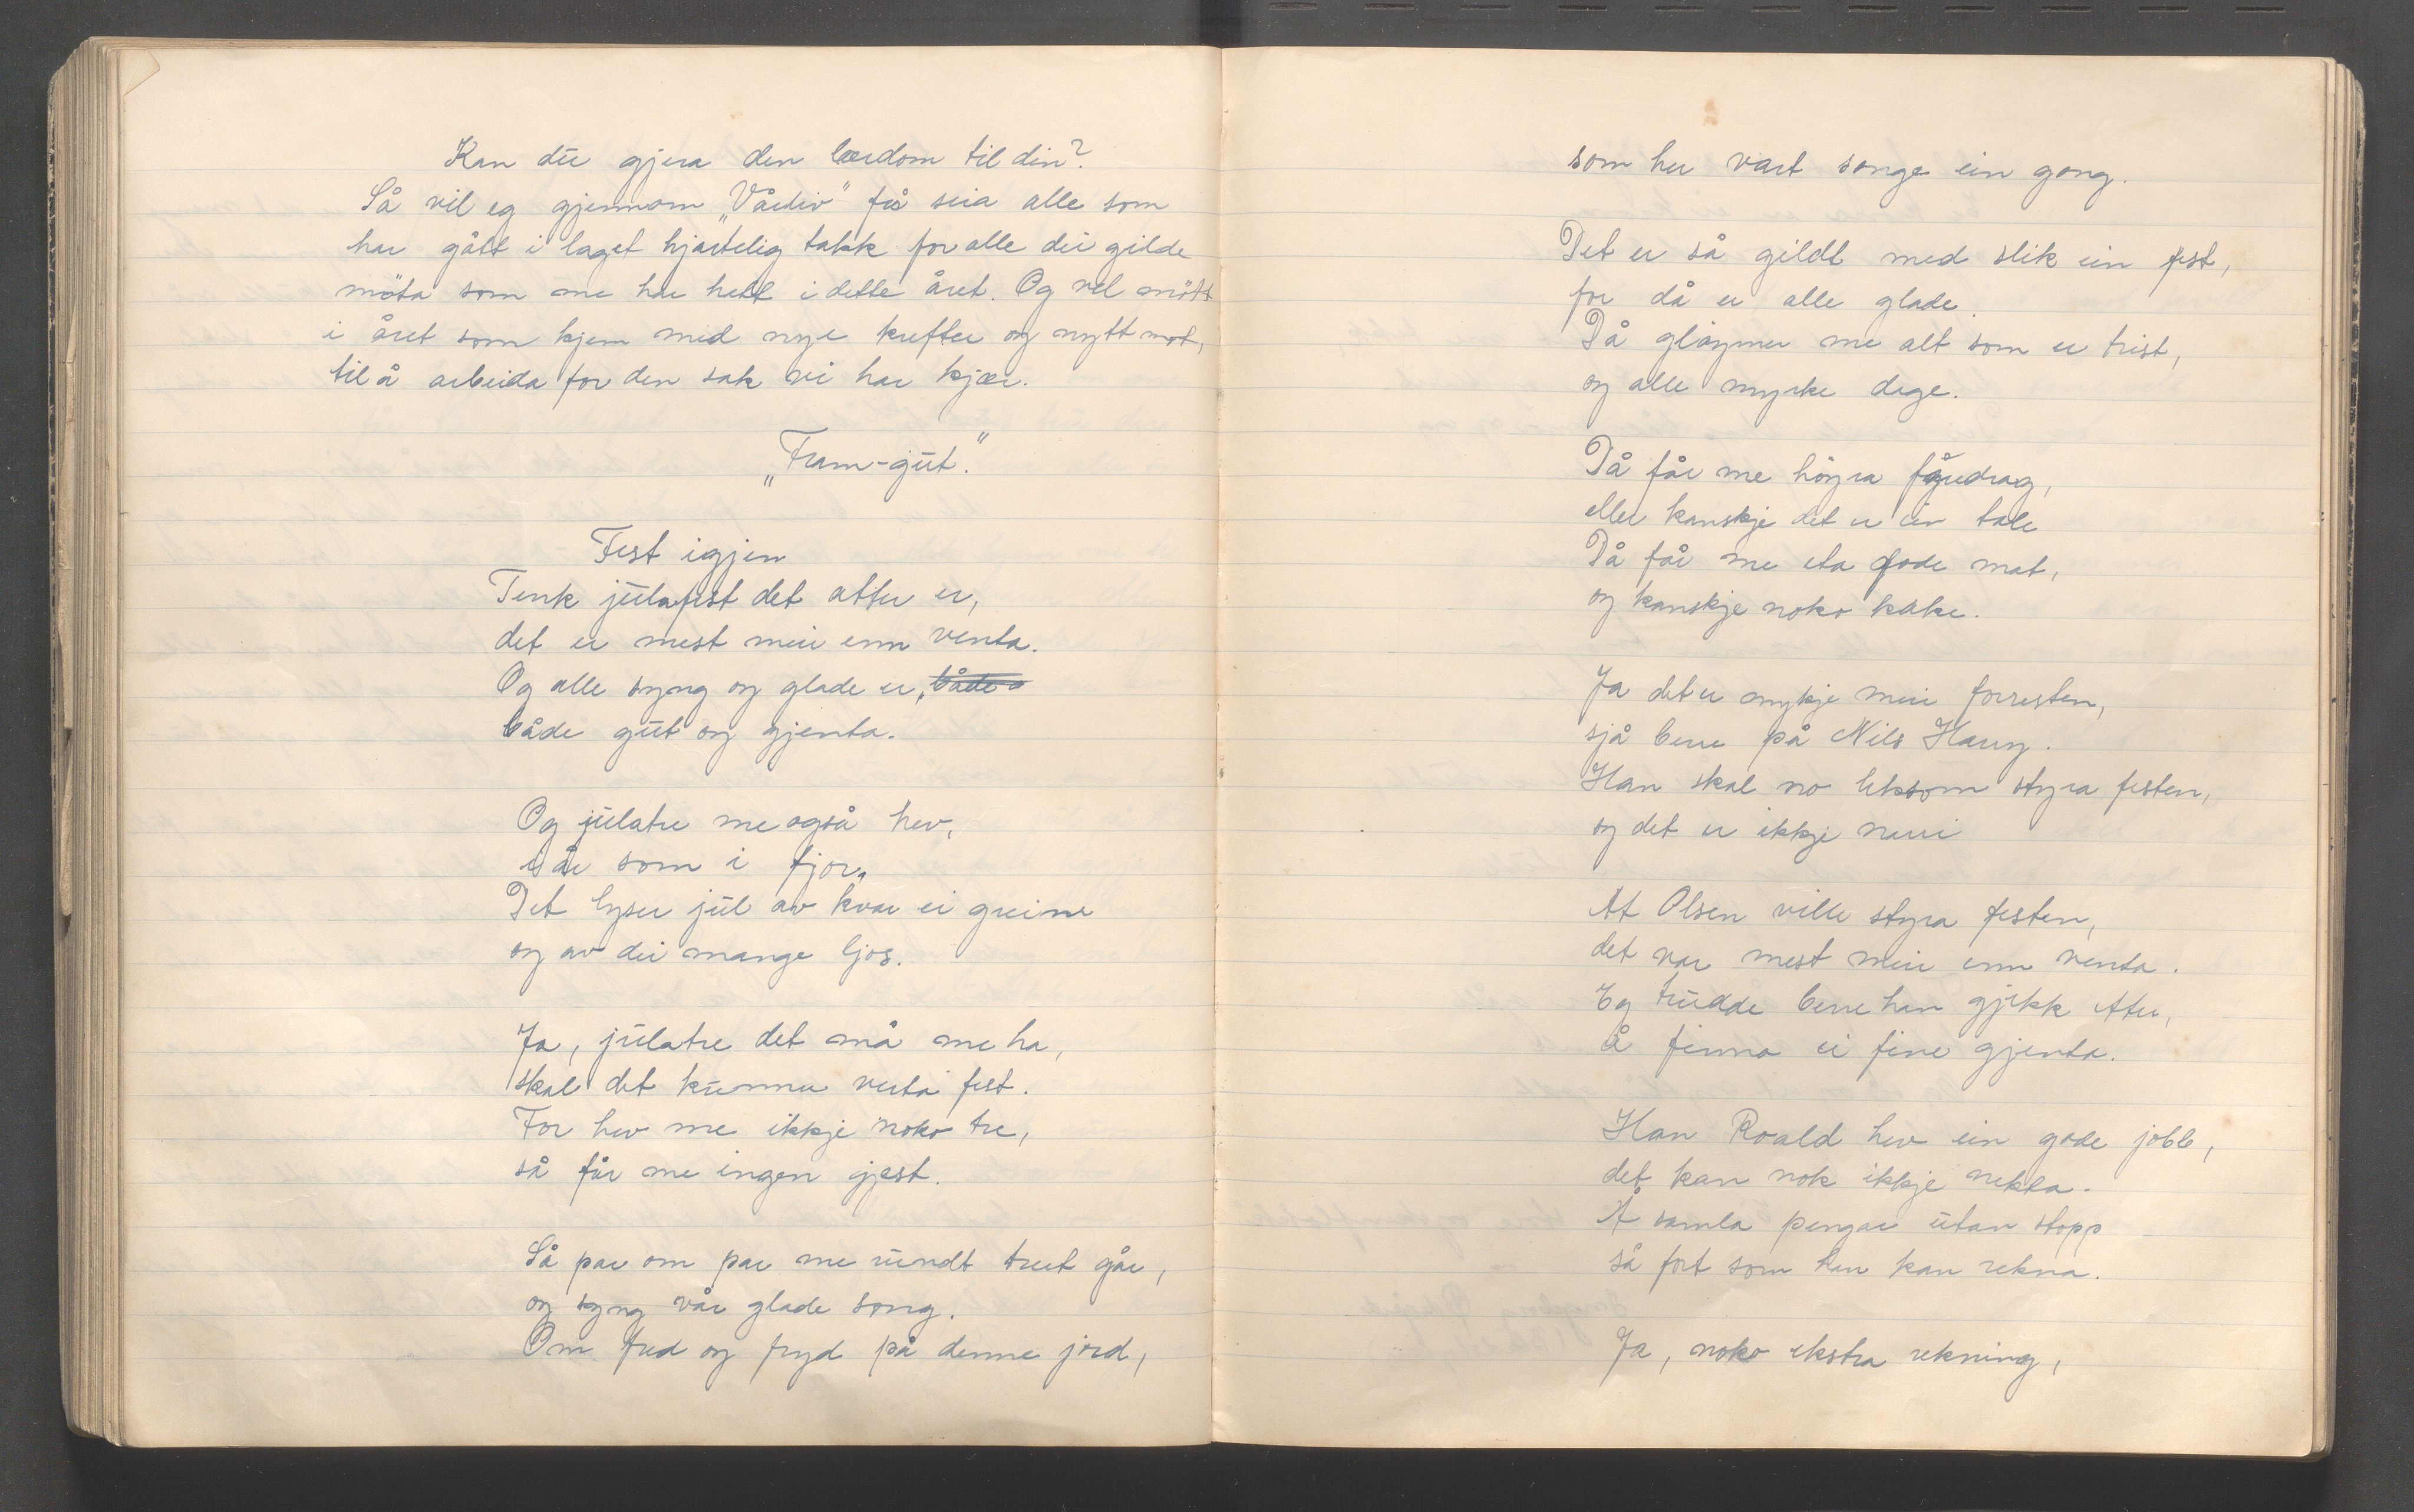 Kan du gjera den lærdom til din?
Så vil eg gjennom „Vårliv" få seia alle som
har gått i laget hjartelig takk for alle dei gilde
möta som me har hatt i dette året. Og vel mött
i året som kjem med nye krefter og nytt mot,
til å arbeida for den sak vi har kjær.
„Fram-gut."
Fest igjen
Tenk julafest det atter er,
det er mest meir enn venta.
Og alle syng og glade er, både
både gut og gjenta.
Og julatre me også hev,
i år som i fjor.
Det lyser jul av kvar ei greine
og av dei mange ljos.
Ja, julatre det må me ha,
skal det kunna verta fest.
For hev me ikkje noko tre,
så får me ingen gjest.
Så par om par me rundt treet går,
og syng vår glade song.
Om fred og fryd på denne jord,
som her vart songe ein gong.
Det er så gildt med slik ein fest,
for då er alle glade.
Då gløymer me alt som er trist,
og alle myrke dage.
Då får me höyra foredrag,
eller kanskje det er ein tale
Då får me eta gode mat,
og kanskje noko kake.
Ja det er mykje meir forresten,
sjå berre på Nils Haug.
Han skal no liksom styra festen,
og det er ikkje narri
At Olsen ville styra festen,
det var mest meir enn venta.
Eg trudde berre han gjekk etter,
å finna ei fine gjenta.
Han Roald hev ein gode jobb,
det kan nok ikkje nekta.
Å samla pengar utan stopp
så fort som han kan rekna.
Ja, noko ekstra rekning,